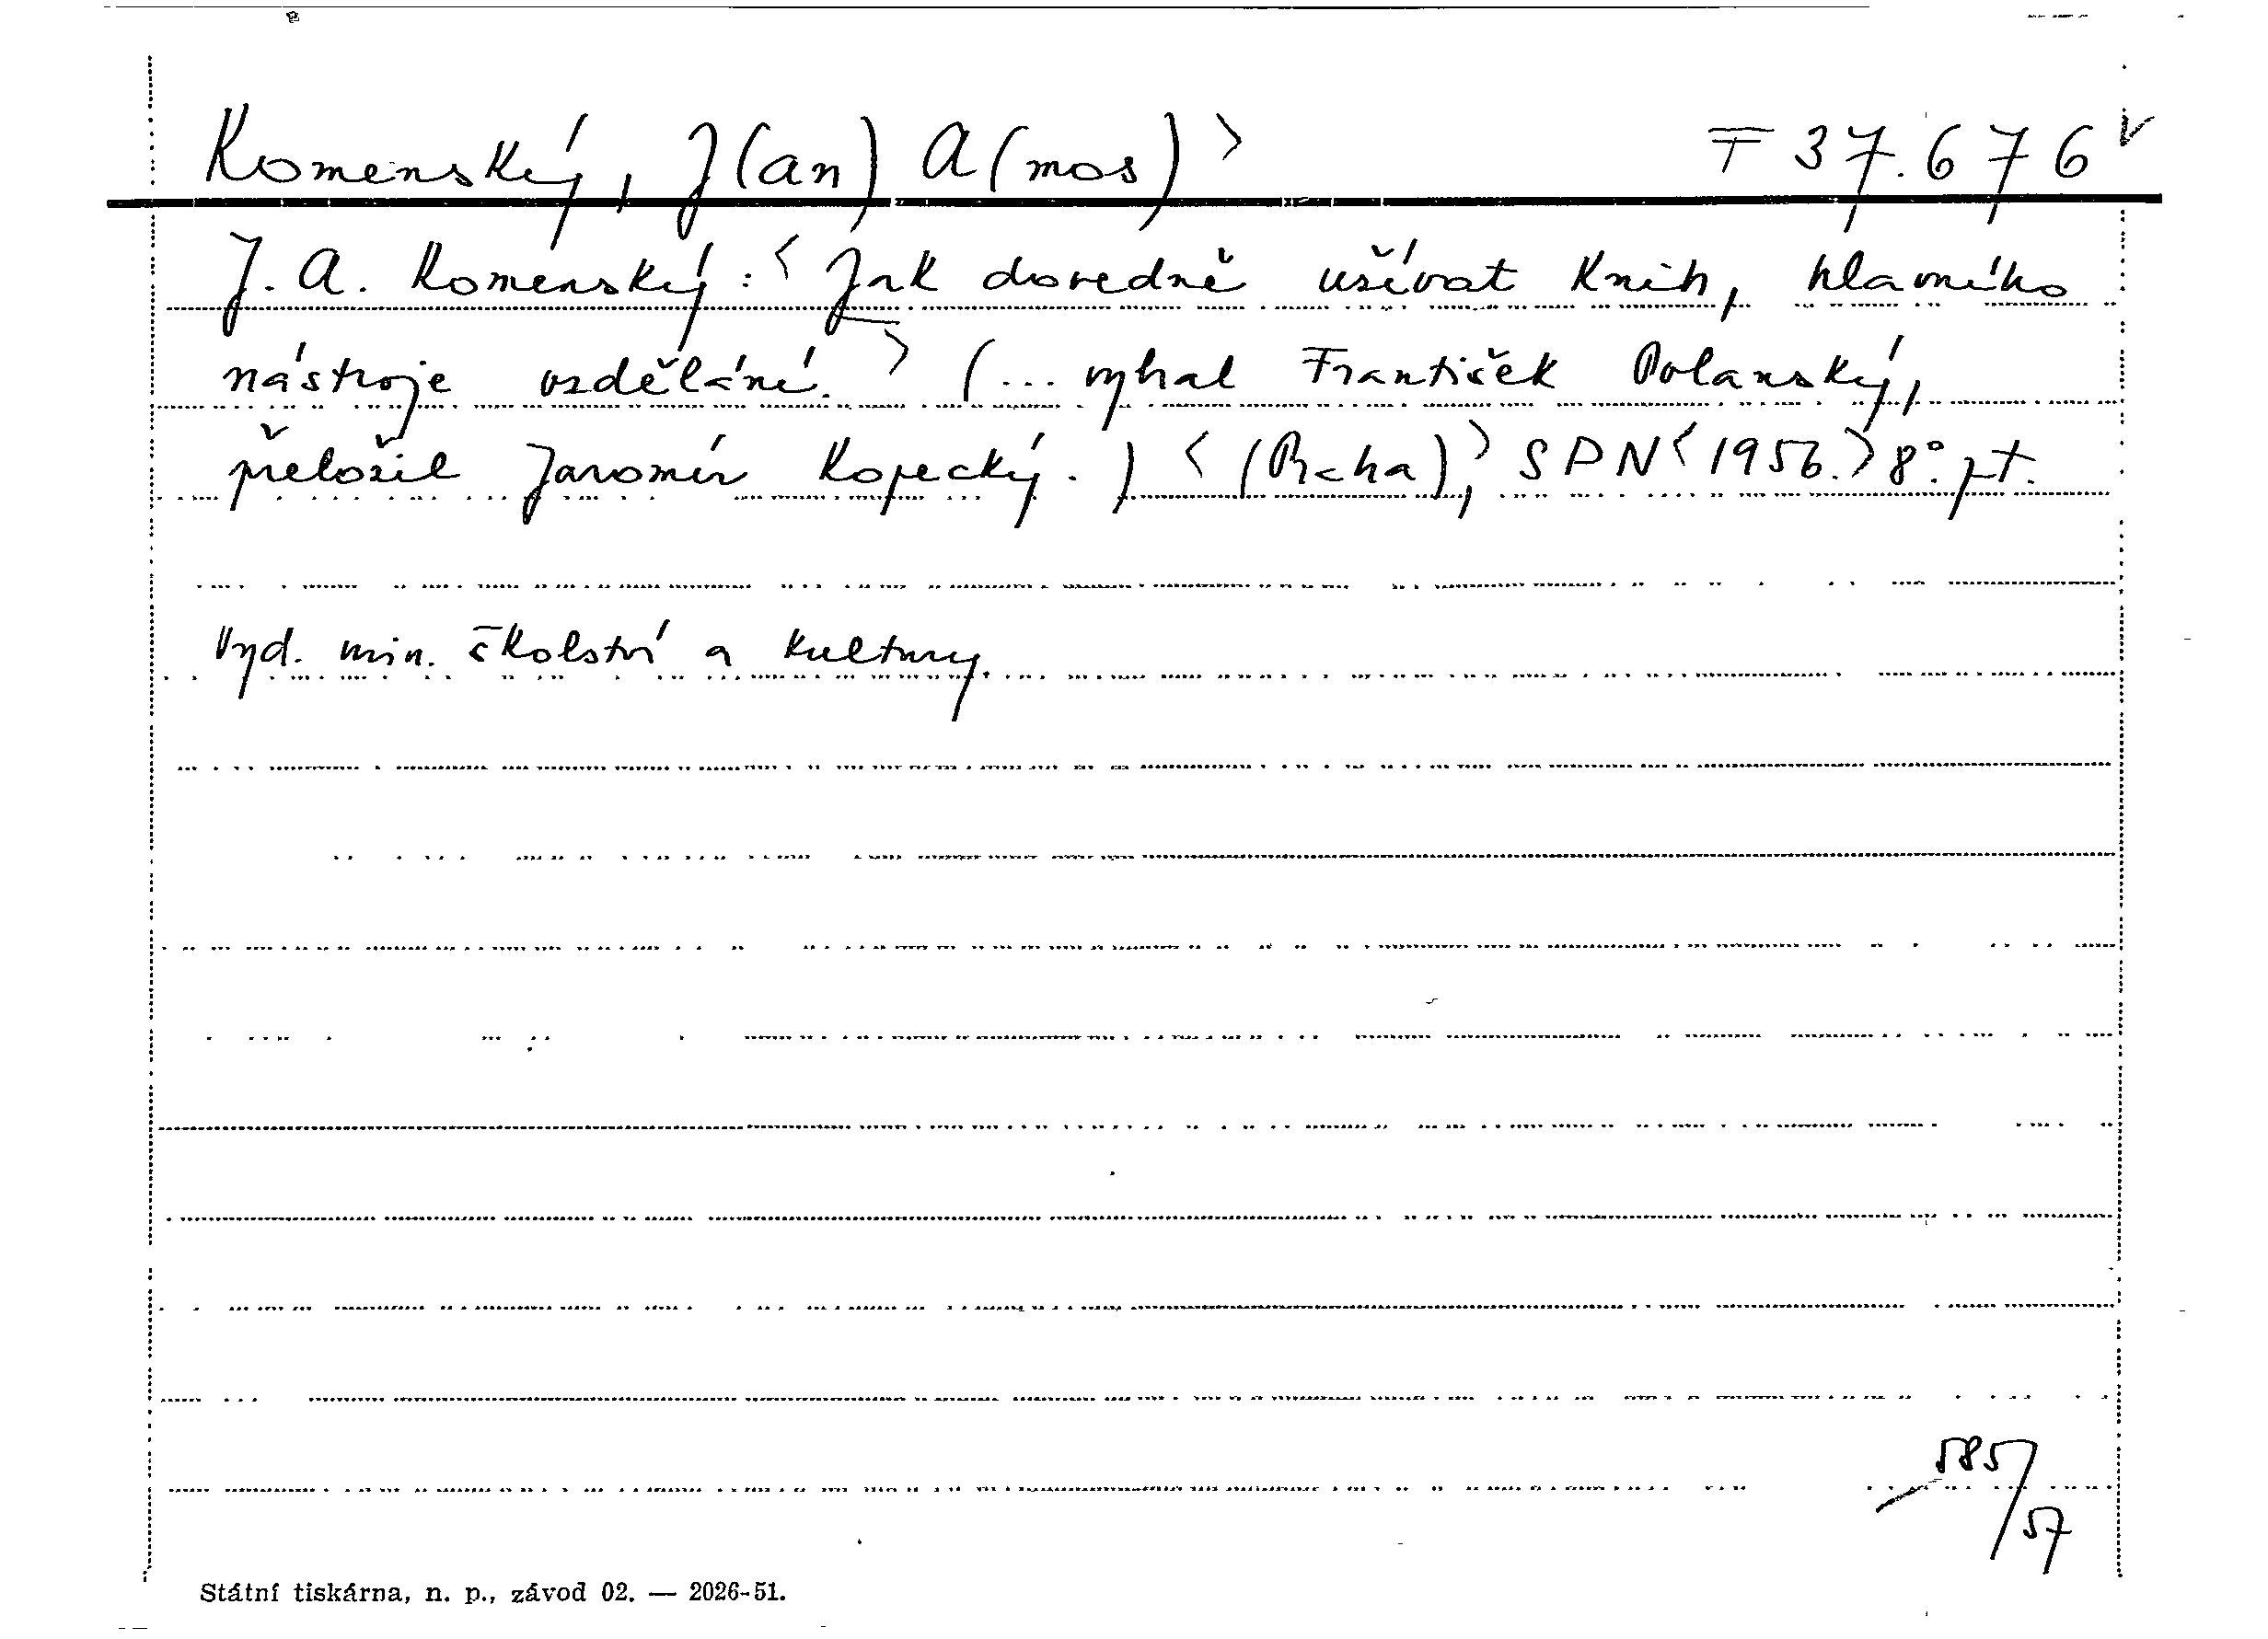 Komenský, J(an) A(mos) > F 37.676
J. A. Komenský: < Jak dovedně užívat knih, hlavního
nástroje vzdělání. > (... vybral František Polanský,
přeložil Jaromír Kopecký.) < (Praha), > SPN < 1956. > 8°. pt.
Vyd. min. školství a kultury.
585/57
Státní tiskárna, n. p., závod 02. — 2026-51.